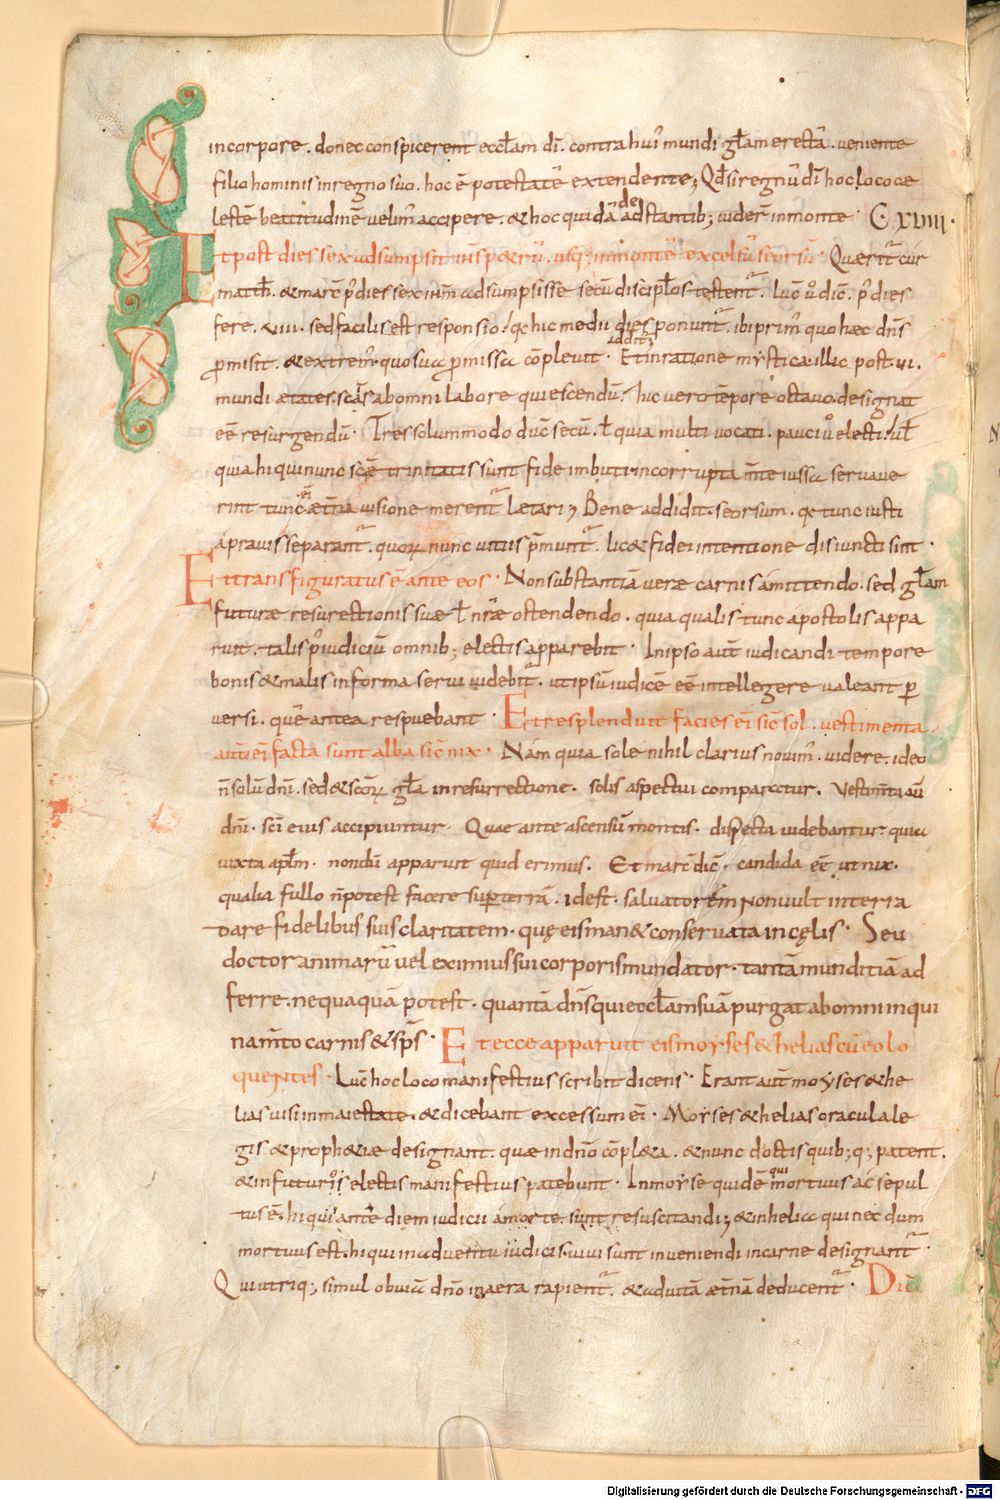 incorpore. donec conspicerent eccl̄am dī. contra hui᾽ mundi gl̄am erectā. veniente
filio hominis in regno suo. hoc ē potestatē extendente; Qd̄ si regnū dī hoc loco ce
lestē beatitudinē velim᾽ accipere. & hoc quidā de adstantib; viderī in monte · C XVIIII ·
Et post dies sex adsumpsit ih̄s petrū. usq; in montē excelsū seorsū · Quaerit᾽ cur
math̄. & marc᾽ p᾽ dies sex adsumpsisse secū discipl̄os testent᾽. Luc᾽ v᾽ dic̄. p᾽ dies
fere. VIII. sed facilis est responsio qa hic medii dies ponunt᾽. ibi prim᾽ quo haec dn̄s
promisit. & extrem᾽ quo sua promissa cōplevit · addit᾽ Et in ratione mystica illic post VI.
mundi aetates. scōs ab omni labore quiescendū. hic vero tēpore octavo designat
eē resurgendū · Tres solummodo duc̄ secū. l̄ quia multi vocati. pauci v᾽ electi. vl̄
quia hi qui nunc scē trinitatis sunt fide imbuti incorrupta m̄te iussa servave
rint tunc ei᾽ aetn̄a visione merent᾽ laetari; Bene addidit. seorsum. qa tunc iusti
a pravis separant᾽. quorum nunc vitiis p̄munt᾽. lic& fidei intentione disiuncti sint ·
Et transfiguratus ē ante eos · Non substantiā verae carnis amittendo. sed gl̄am
futurae resurectionis suae l̄ nr̄ae ostendendo. quia qualis tunc apostolis appa
ruit. talis p᾽ iudiciū omnib; electis apparebit · In ipso aut̄ iudicandi tempore
bonis & malis in forma servi videbit᾽. ut ipsū iudicē eē intellegere valeant per
versi. quē antea respuebant · Et resplenduit facies ei᾽ sic̄ sol. vestimenta
aut̄ ei᾽ facta sunt alba sic̄ nix · Nam quia sole nihil clarius novim᾽. videre. ideo
n̄ solū dn̄i. sed & scōrum gl̄a in resurrectione. solis aspectui comparatur. Vestim̄ta aut̄
dn̄i. sc̄i eius accipiuntur. Quae ante ascensū montis. dispecta videbantur quia
iuxta apl̄m. nondū apparuit quid erimus. Et marc᾽ dic̄. candida eē ut nix.
qualia fullo n̄ potest facere super terrā. idest. salvatorem non vult in terra
dare fidelibus suis claritatem. quę eis man& conservata in cęlis · Seu
doctor animarū vel eximius sui corporis mundator. tantā munditiā ad
ferre. nequaquā potest. quantā dn̄s qui eccl̄am suā purgat ab omni inqui
nam̄to carnis & sp̄s · Et ecce apparuit eis moyses & helias cū eo lo
quentes · Luc᾽ hoc loco manifestius scribit dicens · Erant aut̄ moyses & he
lias visi in maiestate. & dicebant excessum ei᾽ · Moyses & helias oracula le
gis & proph&iae designant. quae in dn̄o cōpl&a. & nunc doctis quib; q; patent.
& in futuro electis manifestius patebunt · In moyse quidē qui mortuus ac sepul
tus ē. hi qui ante diem iudicii a morte. sunt resuscitandi; & in helia qui nec dum
mortuus est. hi qui in adventu iudicis. vivi sunt inveniendi in carne designant᾽ ·
Qui utriq; simul obviā dn̄o in aera rapient᾽. & ad vitā aetn̄ā deducent᾽ · Dic̄
Digitalisierung gefördert durch die Deutsche Forschungsgemeinschaft - DFG